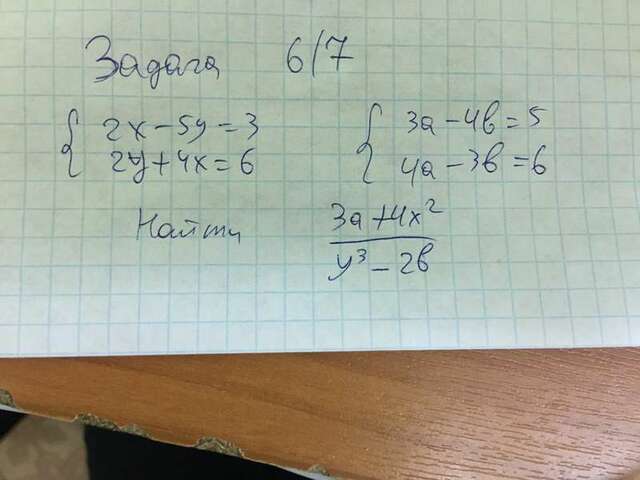 Задача 6/7
{ 2x - 5y = 3
2y + 4x = 6
{ 3a - 4b = 5
4a - 3b = 6
Найти
3a + 4x²
y³ - 2b